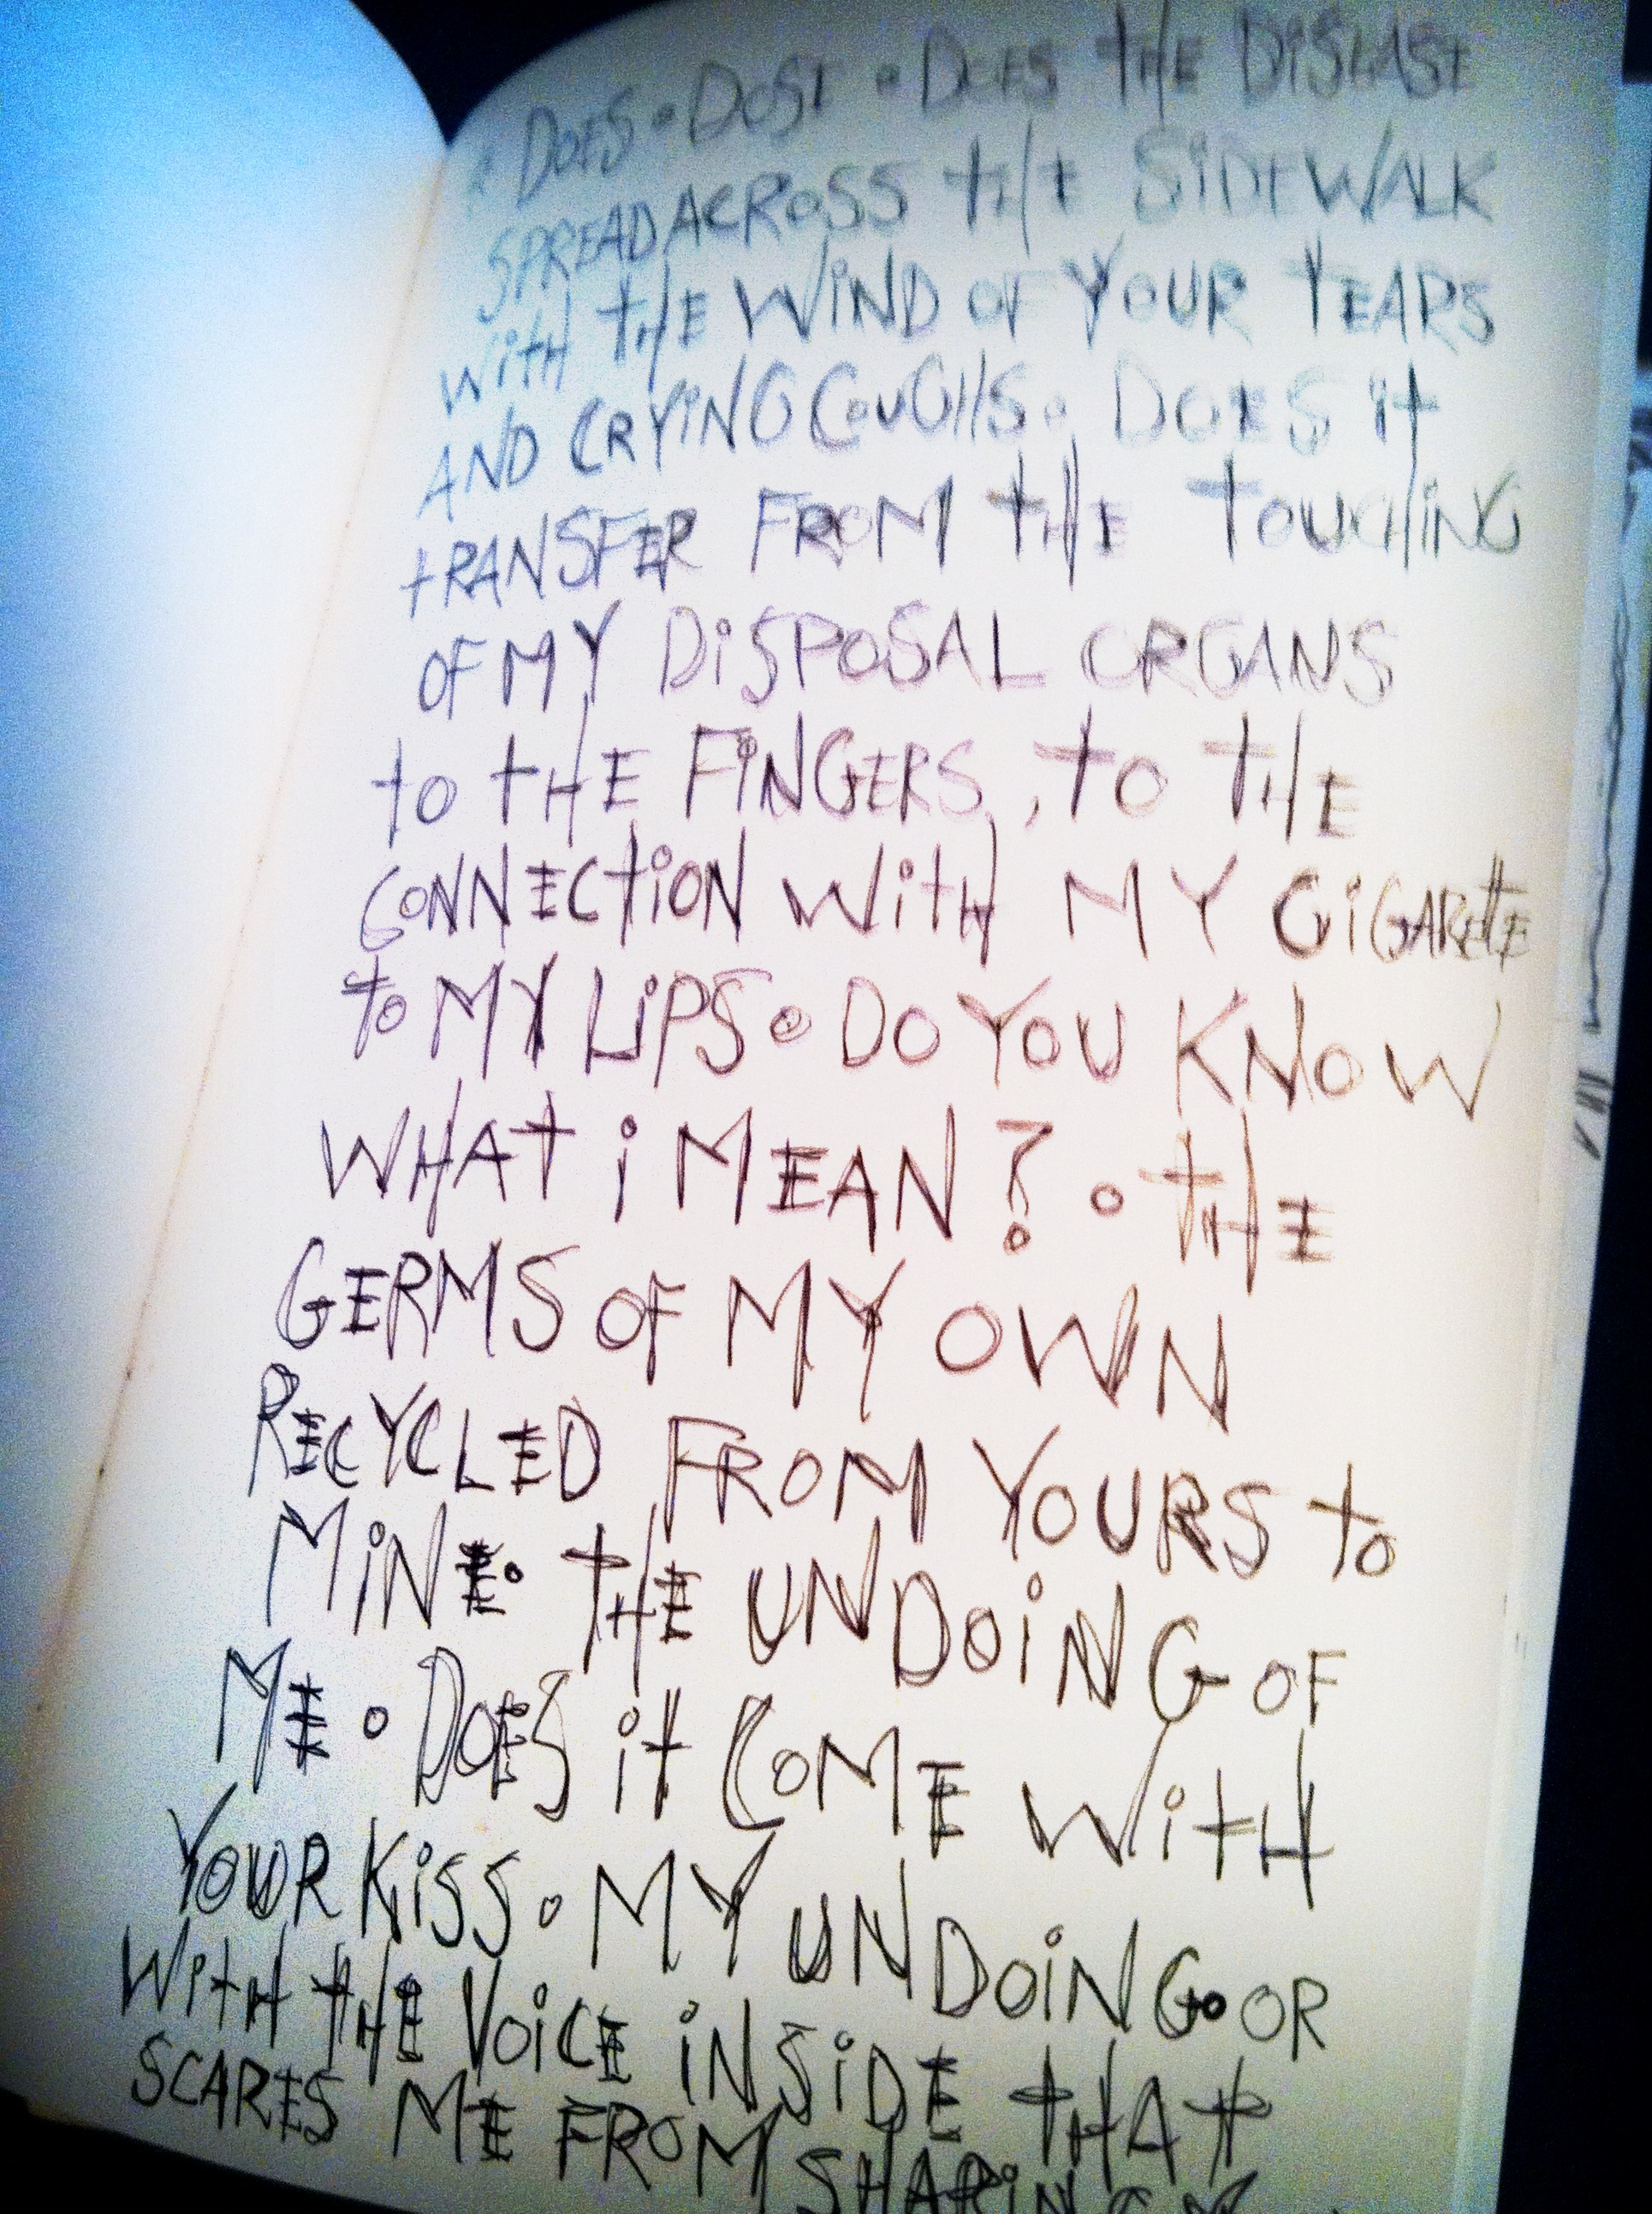 DOES • DOSE • DOES tHE DISEASE
SPREAD ACROSS tHE SiDEWALK
WitH tHE WiND OF YOUR TEARS
AND CRYiNG COUGHS • DOES it
tRANSFER FROM tHE TOUCHiNG
OF MY DiSPOSAL ORGANS
to tHE FiNGERS, tO tHE
CONNECtiON WitH MY CiGAREttE
to MY LiPS • DO YOU KNOW
WHAt i MEAN? • tHE
GERMS OF MY OWN
RECYCLED FROM YOURS to
MiNE • tHE UNDOiNG OF
ME • DOES it COME WitH
YOUR KiSS • MY UNDOiNG • OR
WitH tHE VOiCE iNSiDE tHAt
SCARES ME FROM SHARiNG